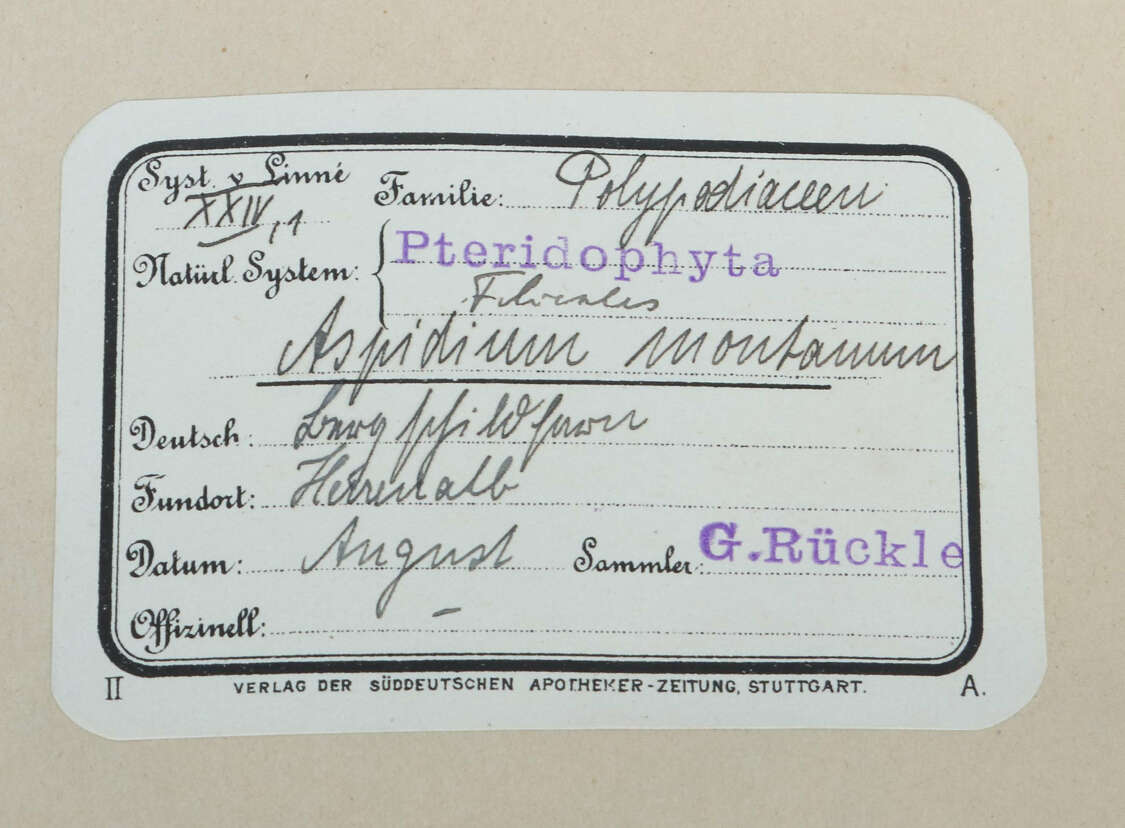 Syst. v Linné Familie: Polypodiaceen
XXIV, 1
Natürl. System: Pteridophyta
Filicales
Aspidium montanum
Deutsch: Bergschildfarn
Fundort: Herrenalb
Datum: August Sammler: G. Rückle
Offizinell: –
II VERLAG DER SÜDDEUTSCHEN APOTHEKER-ZEITUNG, STUTTGART. A.